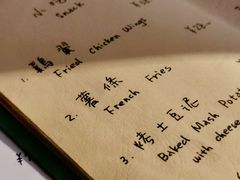 小吃
snack
1. 鷄翼
Fried Chicken Wings
2. 薯條
French Fries
3. 烤土豆泥
Baked Mash Potat
with cheese